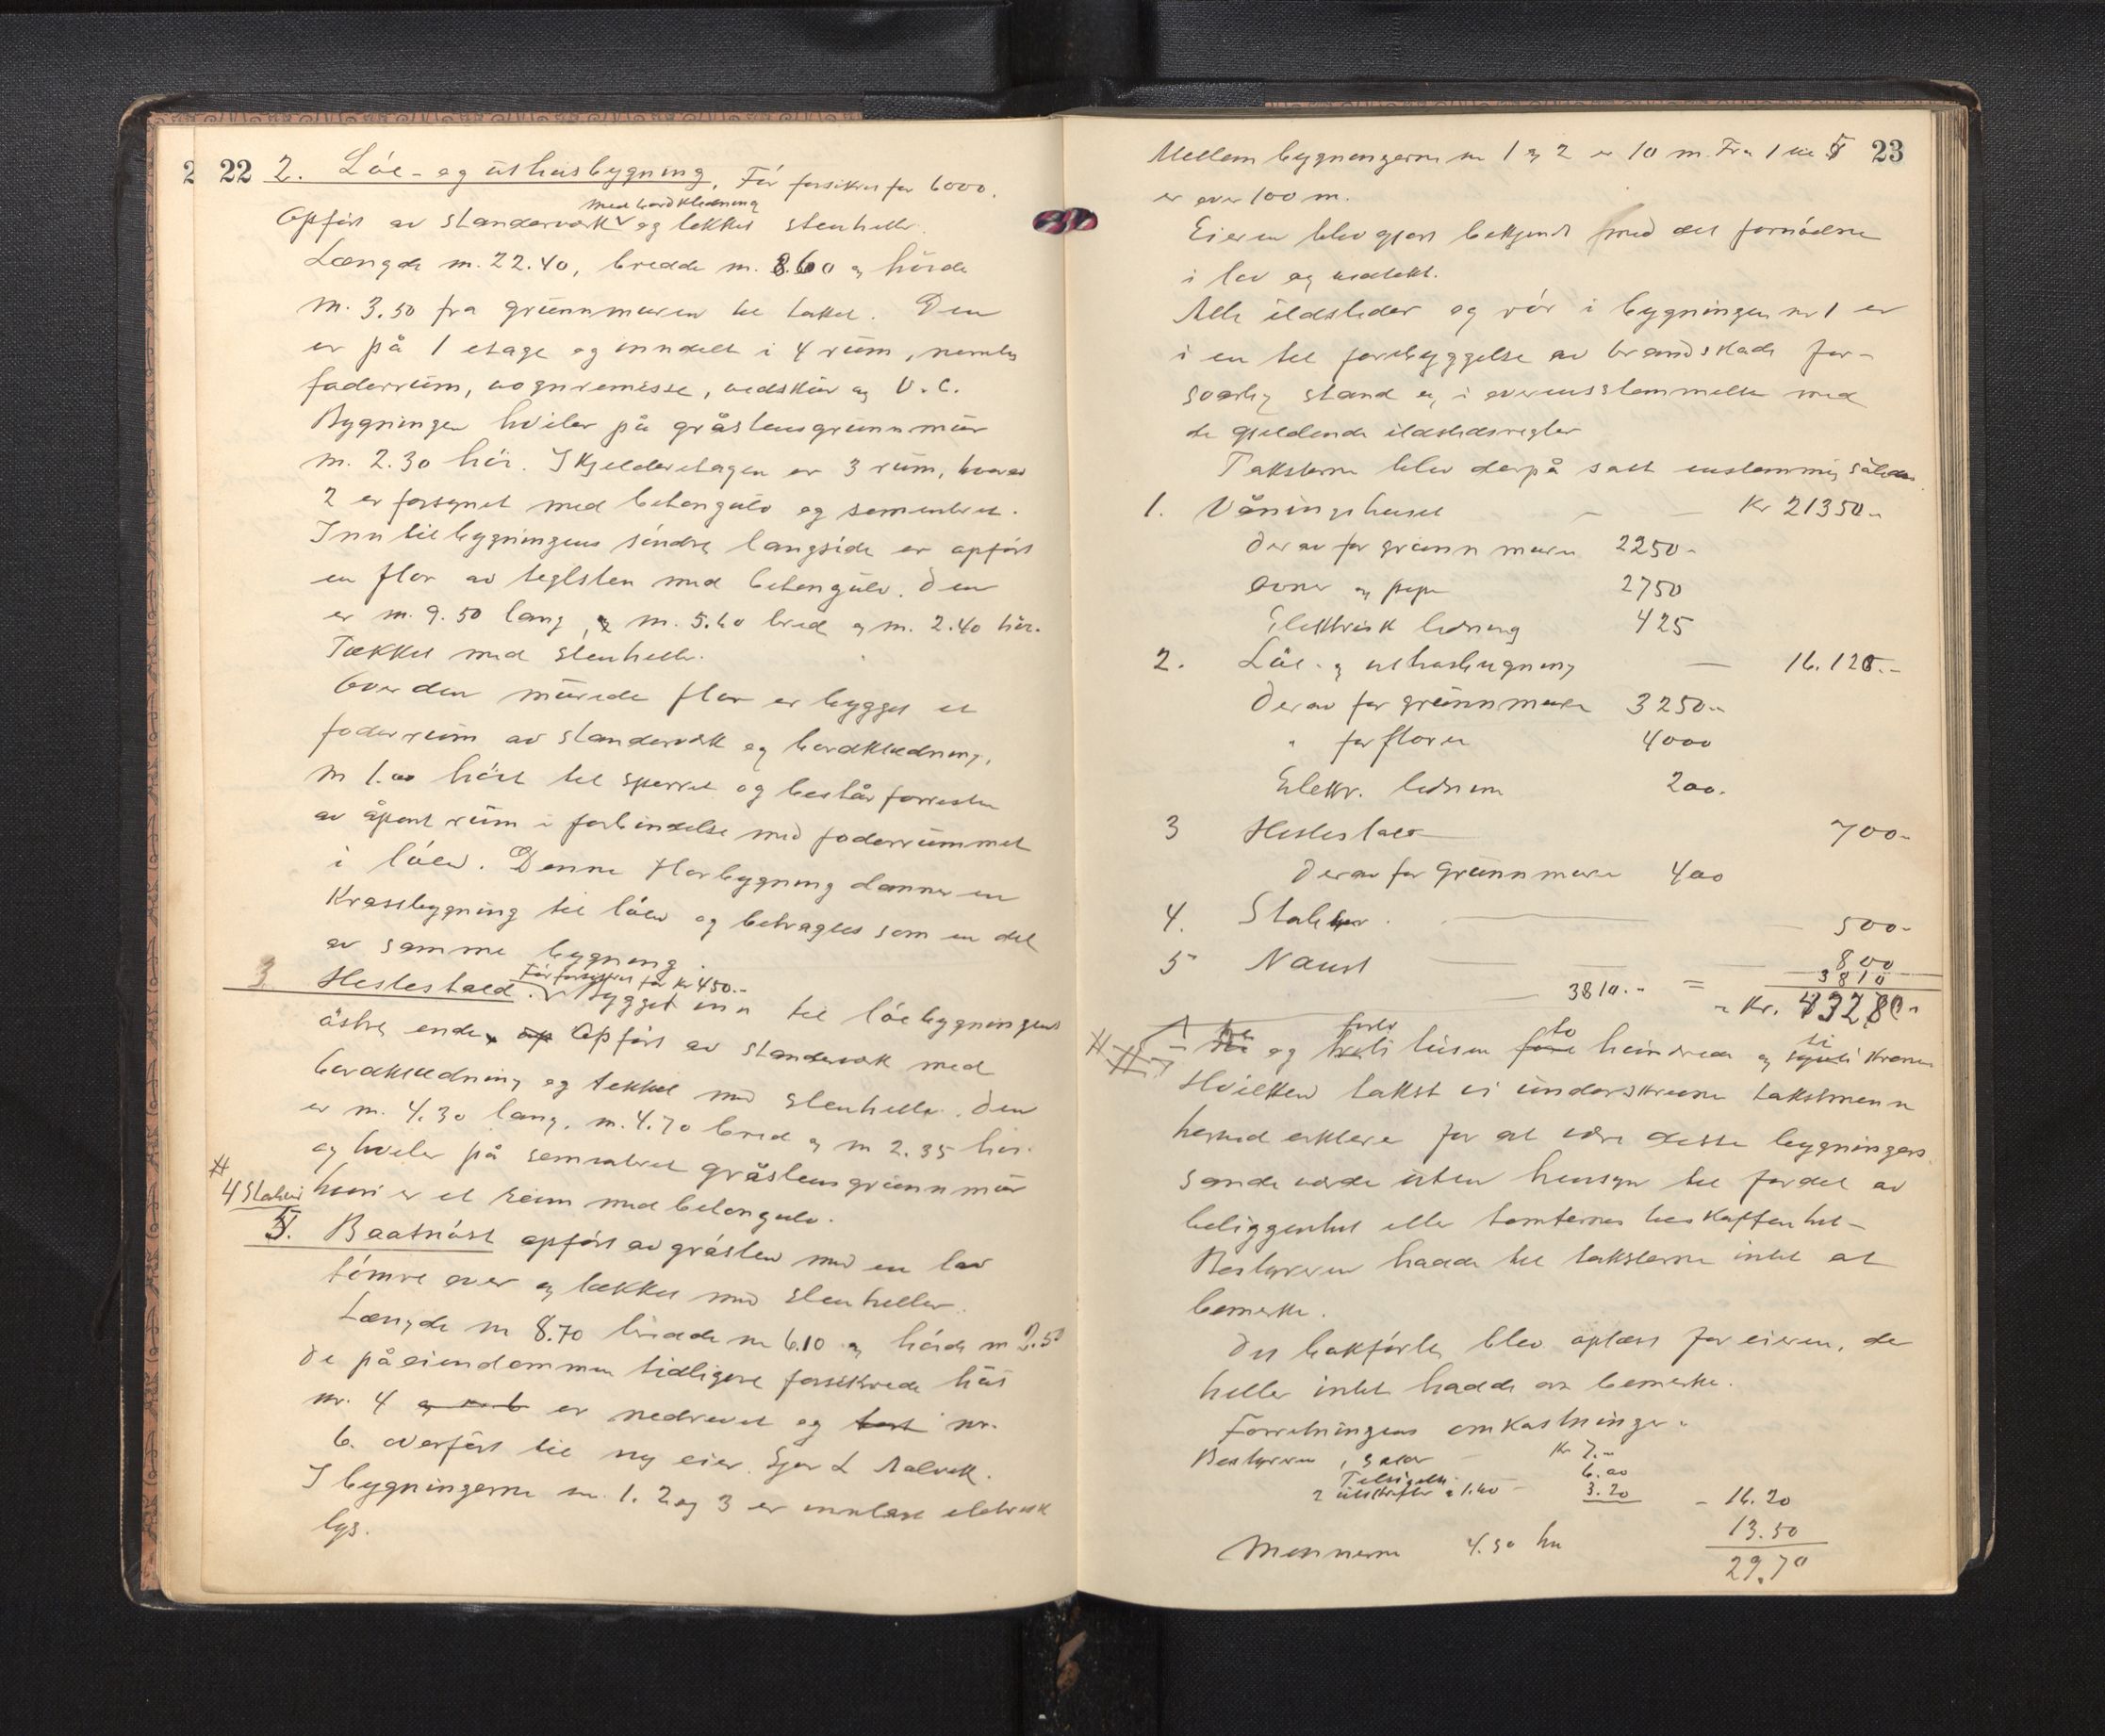 22
2. Löe- og uthusbygning. Før forsikret for 6000.
Opført av standerverk med bordklædning og tekket stenheller.
Længde m. 22.40, bredde m. 8.60 og høide
m. 3.50 fra grunnmuren til taket. Den
er på 1 etage og inndelt i 4 rum, nemlig
foderrum, vognremisse, vedskur og V.C.
Bygningen hviler på gråstensgrunnmur
m. 2.30 høi. I kjelderetagen er 3 rum, hvorav
2 er forsynet med betongulv og sementert.
Inn til bygningens søndre langside er opført
en flor av teglsten med betongulv. Den
er m. 9.50 lang, m. 5.60 bred og m. 2.40 høi.
Tækket med stenheller.
Over den murede flor er bygget et
foderrum av standerverk og bordklædning,
m 1.00 høit til sperret og består forresten
av åpent rum i forbindelse med foderrummet
i löen. Denne florbygning danner en
krossbygning til löen og betragtes som en del
av samme bygning.
3 Hestestald. Før forsikret for kr 450.- Bygget inn til löebygningens
østre ende, op Opført av standerverk med
bordklædning og tekket med stenheller. Den
er m. 4.30 lang, m. 4.70 bred og m 2.35 høi.
og hviler på sementert gråstensgrunnmur
hvori er et rum med betongulv.
#
4 Stakur
5. Baatnøst opført av gråsten med en lav
tømre over og tækket med stenheller.
Længde m 8.70 bredde m 6.10 og høide m 2.50
De på eiendommen tidligere forsikrede hus
nr. 4 er nedrevet og nr.
6. overført til ny eier
I bygningerne nr. 1. 2 og 3 er innlagt elektrisk
lys.
Mellem bygningerne nr 1 og 2 er 10 m. Fra 1 til 5 23
er over 100 m.
Eieren blev gjort bekjendt med det fornødne
i lov og vedtekt.
Alle ildsteder og rör i bygningen nr 1 er
i en til forebyggelse av brandskade for-
svarlig stand og i overensstemmelse med
de gjeldende ildstedsregler
Taksterne blev derpå satt enstemmig således
1. Våningshuset — — Kr 21350.-
Derav for grunnmuren 2250.-
ovner og pipe 2750
Elektrisk ledning 425
2. Löe- og uthusbygning — 16.120.-
Derav for grunnmuren 3250.-
" for floren 4000
Elektr. ledning 200.
3 Hestestald 700.-
Derav for grunnmuren 400
4. Stakur 500.-
5 Naust 800
3810.- = 3810
= Kr. 43280.-
# og förti tusen to hundrede og ti kroner
Hvilken takst vi underskrevne takstmenn
herved erklærer for at være disse bygningers
sande værde uten hensyn til fordel av
beliggenhet eller tomternes beskaffenhet –
Bestyreren hadde til taksterne intet at
bemerke.
Det bokførte blev oplæst for eieren, der
heller intet hadde at bemerke.
Forretningens omkostninger.
Bestyreren, salær — Kr 7.-
6.00
2 utskrifter à 1.60 – 3.20 - 16.20
Mennerne 4.50 hv 13.50
29.70